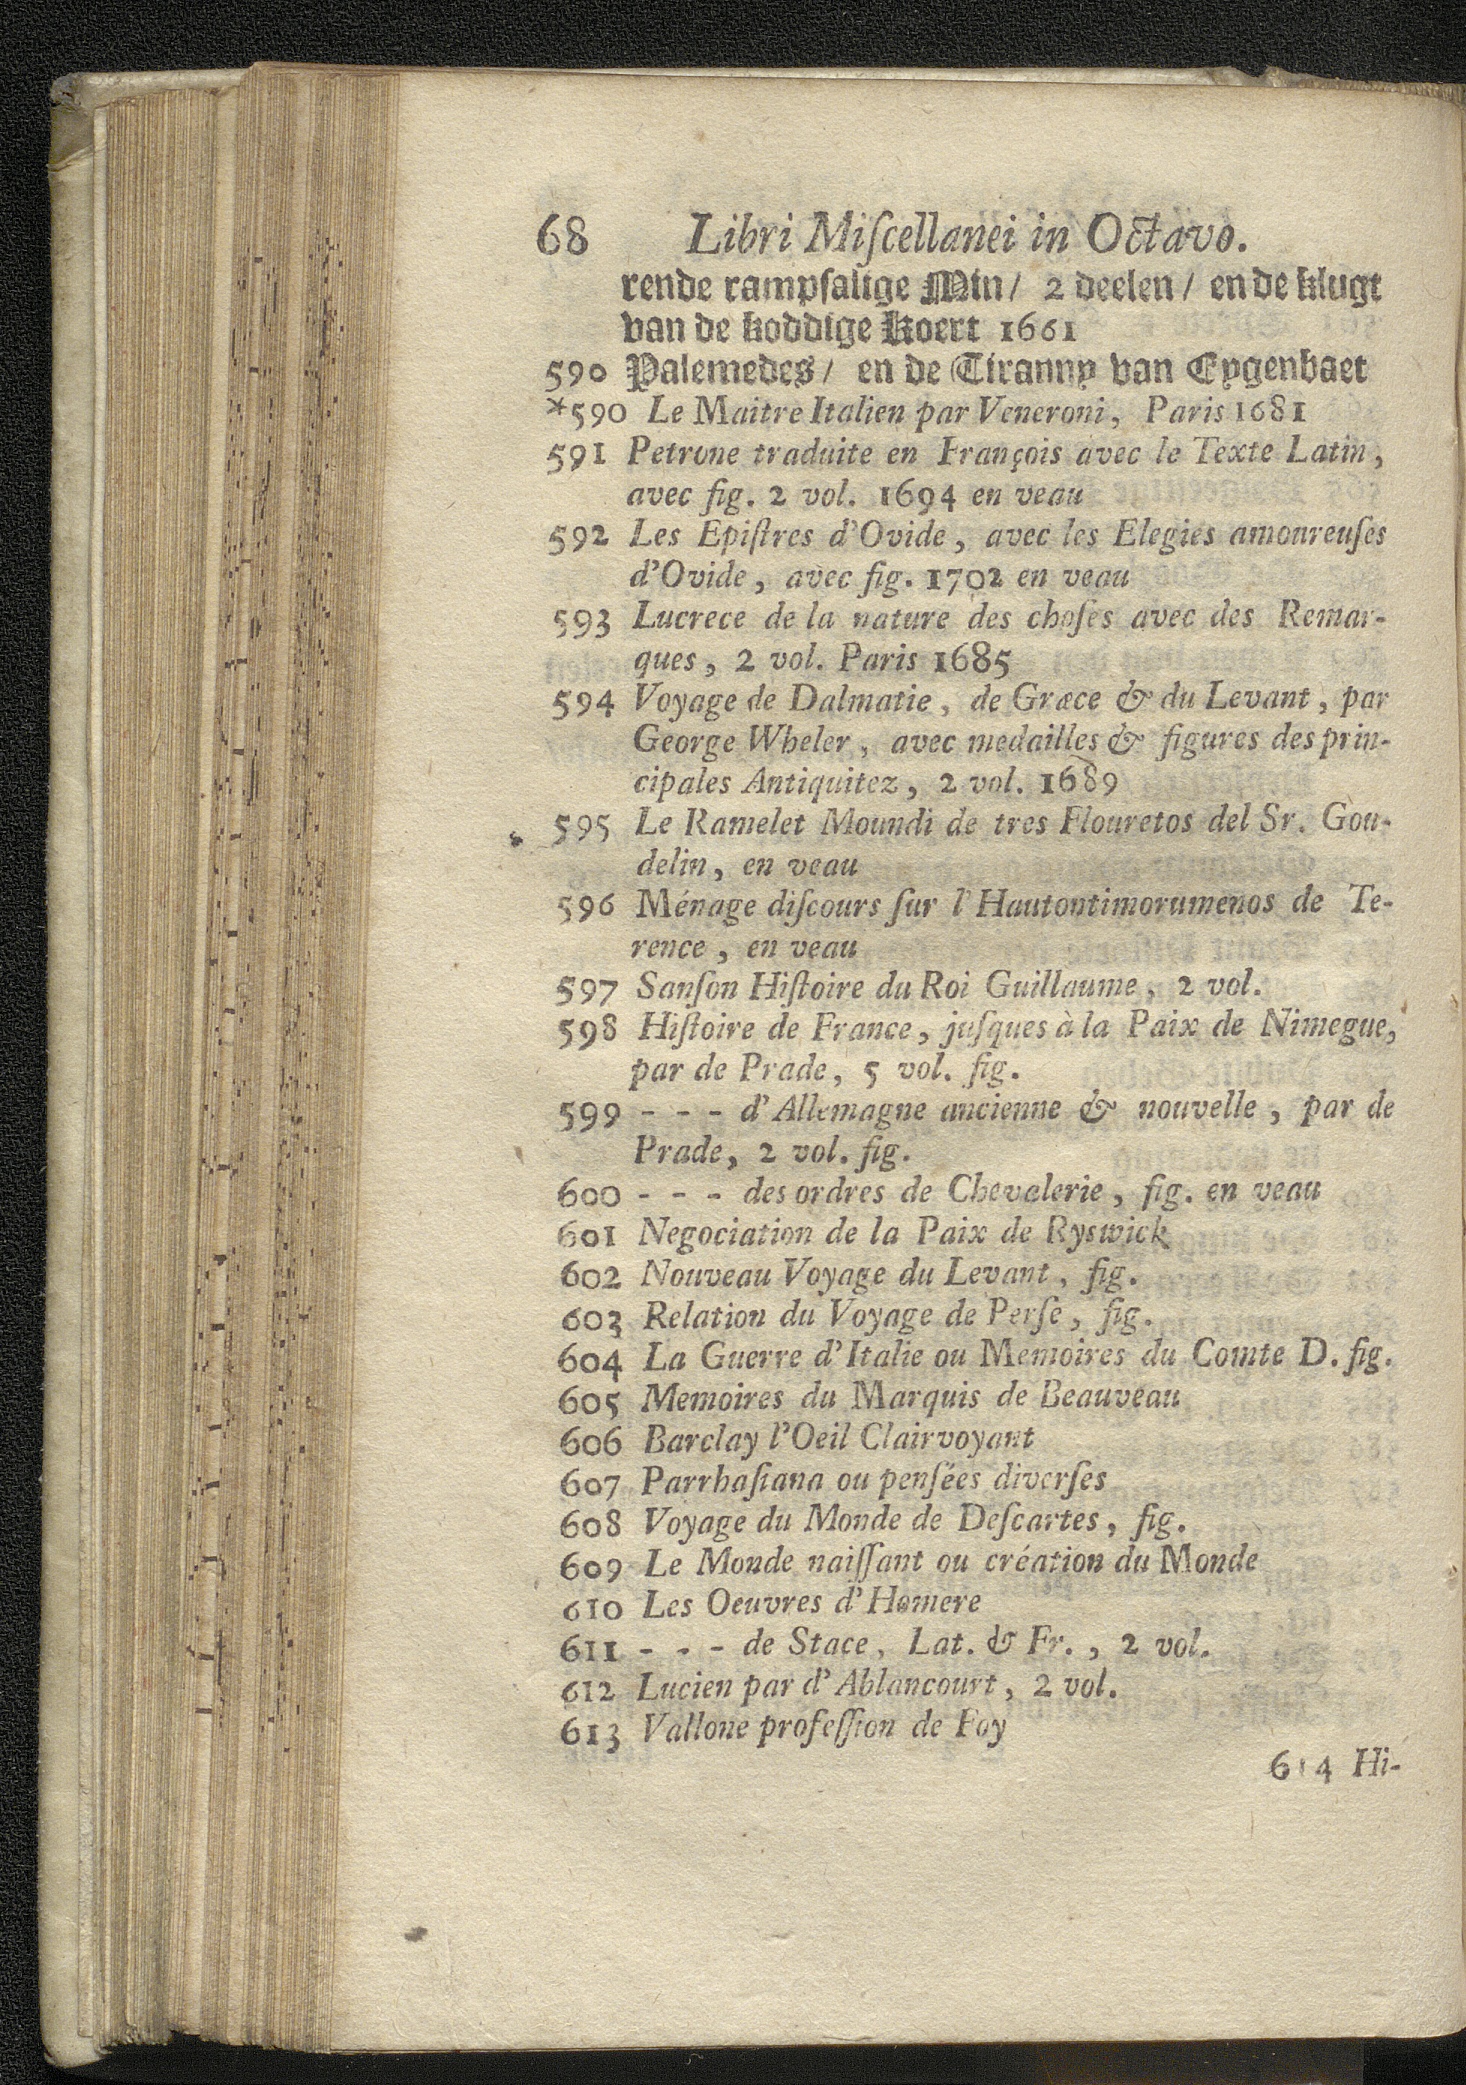 68 Libri Miſcellanei in Octavo.
rende rampſalige Min/ 2 deelen/ en de klugt
van de koddige Koert 1661
590 Palemedes/ en de Tiranny van Eygenbaet
*590 Le Maitre Italien par Veneroni, Paris 1681
591 Petrone traduite en François avec le Texte Latin,
avec fig. 2 vol. 1694 en veau
592 Les Epiſtres d'Ovide, avec les Elegies amoureuſes
d'Ovide, avec fig. 1702 en veau
593 Lucrece de la nature des choſes avec des Remar-
ques, 2 vol. Paris 1685
594 Voyage de Dalmatie, de Græce & du Levant, par
George Wheler, avec medailles & figures des prin-
cipales Antiquitez, 2 vol. 1689
595 Le Ramelet Moundi de tres Flouretos del Sr. Gou-
delin, en veau
596 Ménage diſcours ſur l'Hautontimorumenos de Te-
rence, en veau
597 Sanſon Hiſtoire du Roi Guillaume, 2 vol.
598 Hiſtoire de France, juſques à la Paix de Nimegue,
par de Prade, 5 vol. fig.
599 - - - d'Allemagne ancienne & nouvelle, par de
Prade, 2 vol. fig.
600 - - - des ordres de Chevalerie, fig. en veau
601 Negociation de la Paix de Ryswick
602 Nouveau Voyage du Levant, fig.
603 Relation du Voyage de Perſe, fig.
604 La Guerre d'Italie ou Memoires du Comte D. fig.
605 Memoires du Marquis de Beauveau
606 Barclay l'Oeil Clairvoyant
607 Parrhaſiana ou penſées diverſes
608 Voyage du Monde de Deſcartes, fig.
609 Le Monde naiſſant ou création du Monde
610 Les Oeuvres d'Homere
611 - - - de Stace, Lat. & Fr., 2 vol.
612 Lucien par d'Ablancourt, 2 vol.
613 Vallone profeſſion de Foy
614 Hi-